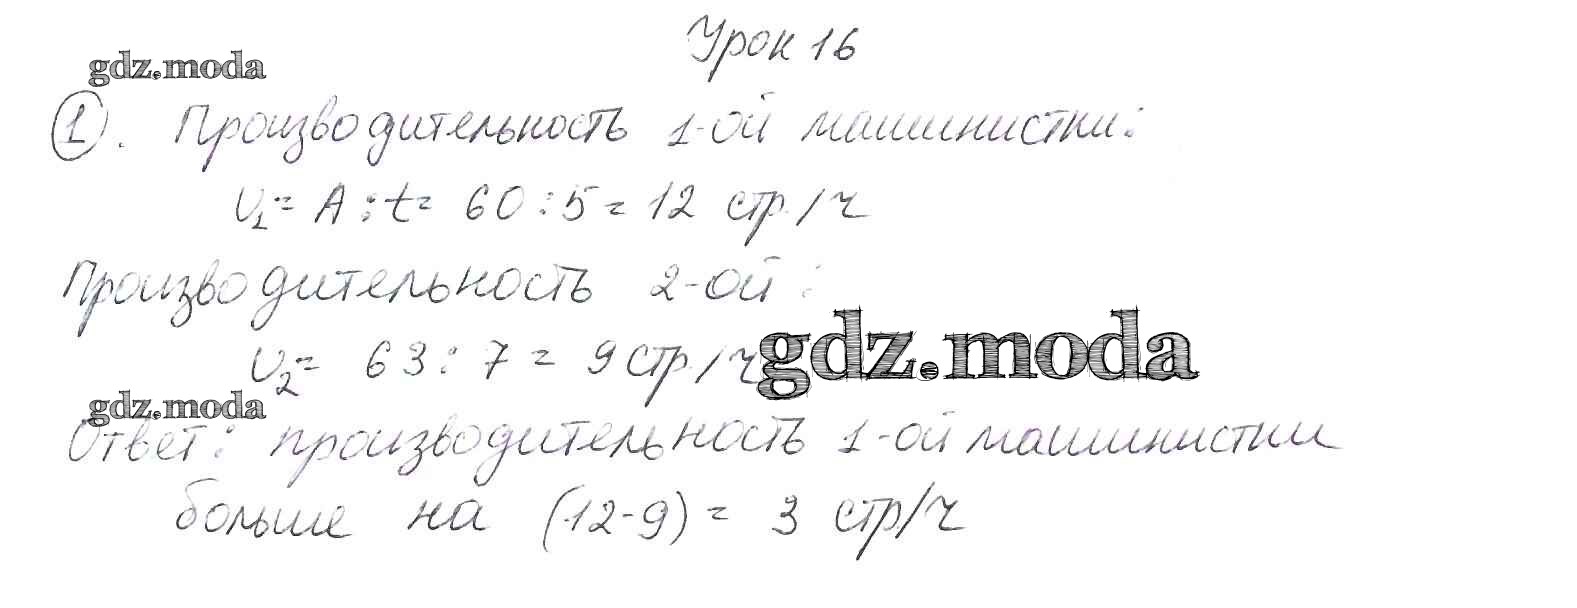 Урок 16
gdz.moda
1. Производительность 1-ой машинистки:
υ₁ = A : t = 60 : 5 = 12 стр./ч
Производительность 2-ой:
υ₂ = 63 : 7 = 9 стр./ч
gdz.moda
gdz.moda
Ответ: производительность 1-ой машинистки
больше на (12-9) = 3 стр/ч